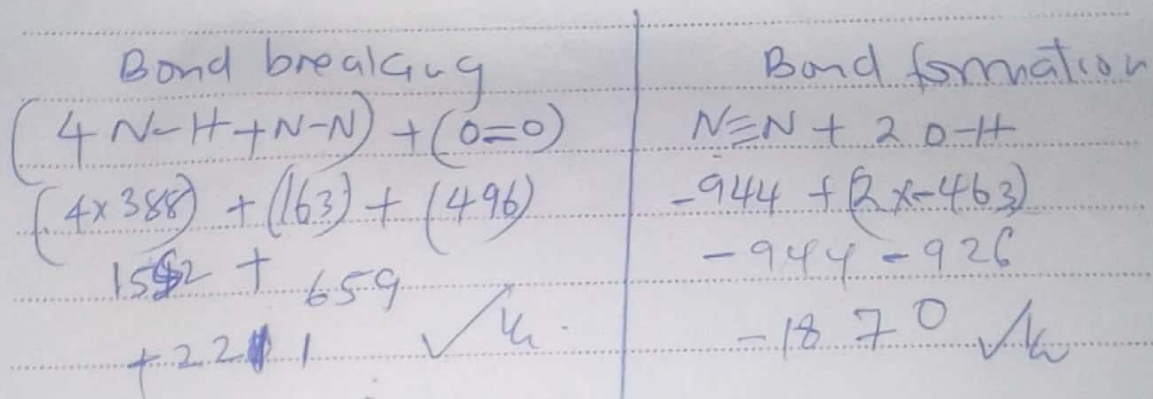 Bond breaking
(4 N-H + N-N) + (O=O)
(4x388) + (163) + (496)
1552 + 659
+2211 ✓½
Bond formation
N≡N + 2 O-H
-944 + (2x-463)
-944 - 926
-1870 ✓½